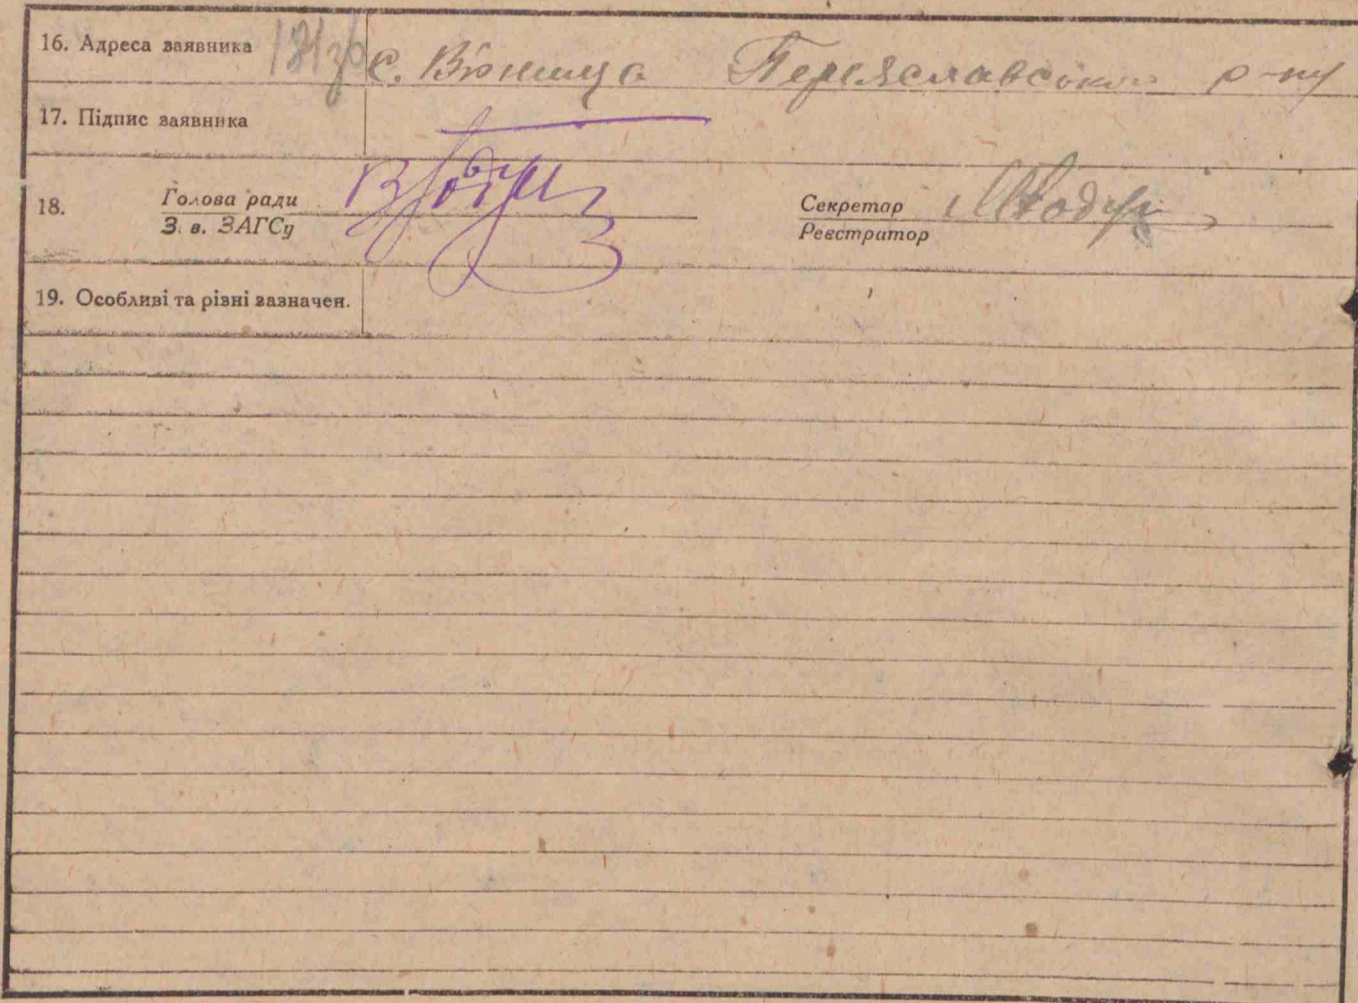 16. Адреса заявника с. В'юнища Переяславського р-ну
17. Підпис заявника
18. Голова ради Секретар
З. в. ЗАГСу Реєстратор
19. Особливі та різні зазначен.